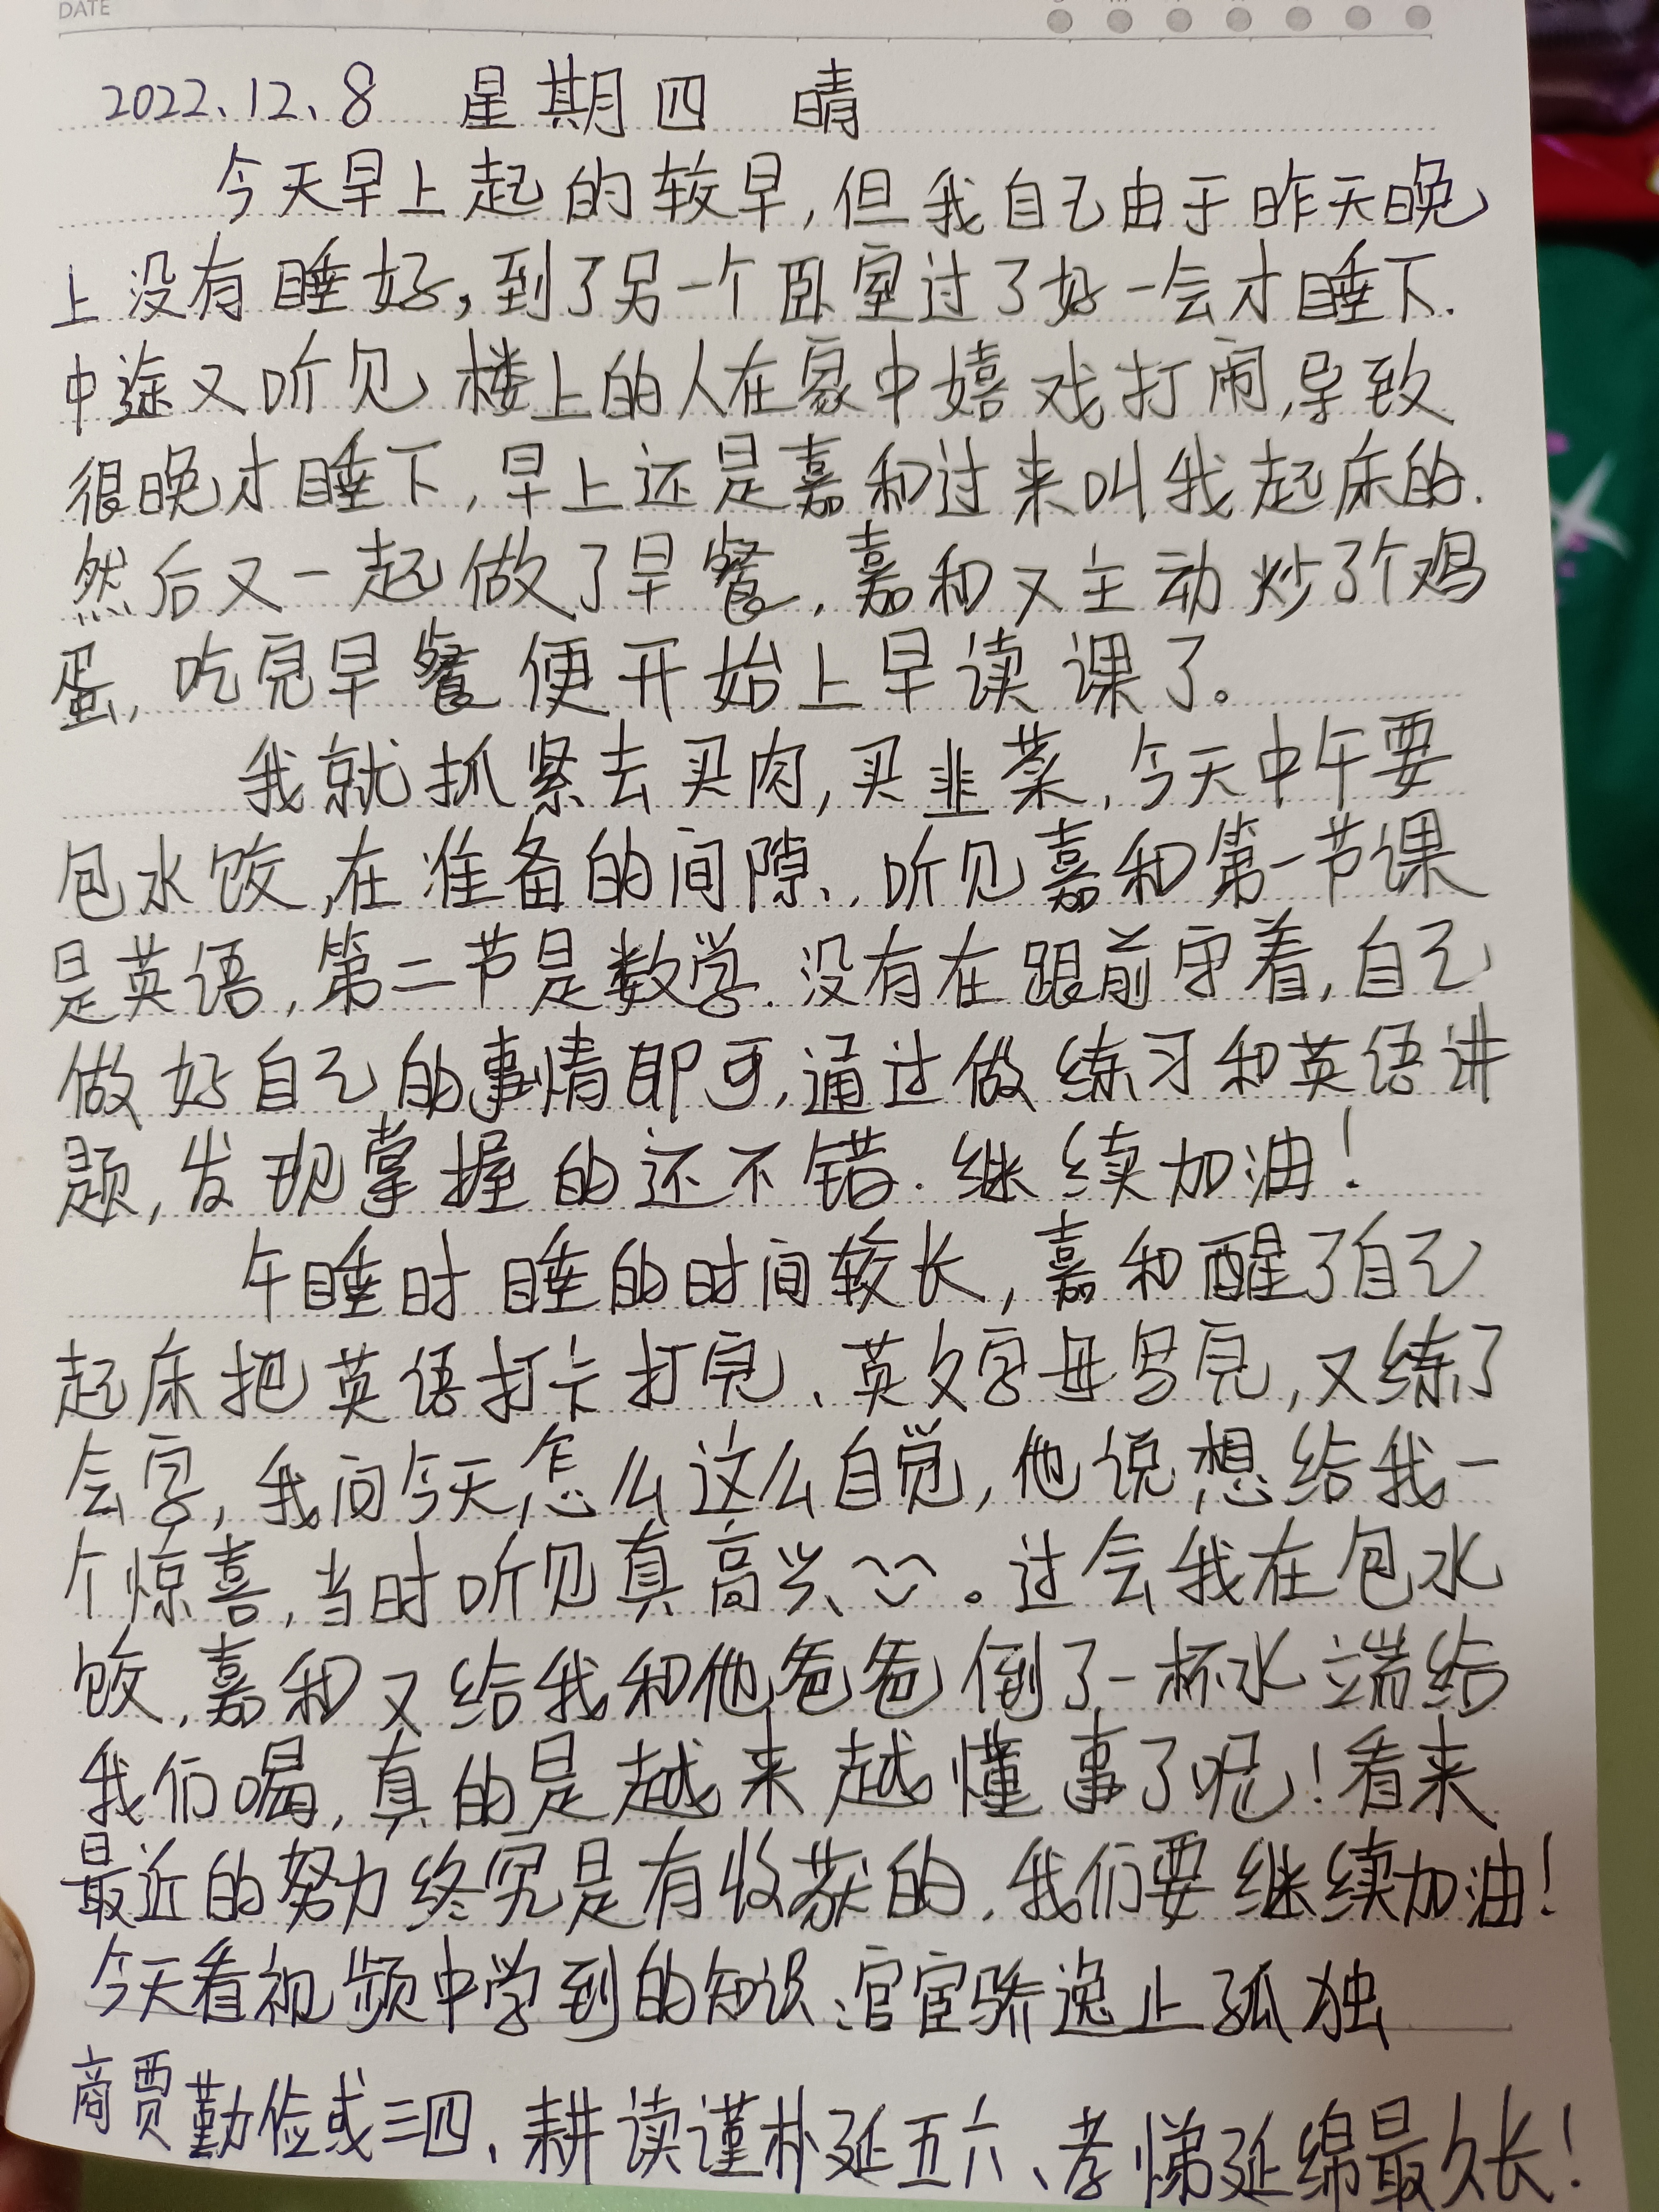 DATE
2022.12.8 星期四 晴
今天早上起的较早,但我自己由于昨天晚
上没有睡好,到了另一个卧室过了好一会才睡下.
中途又听见楼上的人在家中嬉戏打闹,导致
很晚才睡下,早上还是嘉和过来叫我起床的.
然后又一起做了早餐,嘉和又主动炒了个鸡
蛋,吃完早餐便开始上早读课了。
我就抓紧去买肉,买韭菜,今天中午要
包水饺,在准备的间隙,听见嘉和第一节课
是英语,第二节是数学.没有在跟前守着,自己
做好自己的事情即可,通过做练习和英语讲
题,发现掌握的还不错.继续加油!
午睡时睡的时间较长,嘉和醒了自己
起床把英语打卡打完、英文字母写完,又练了
会字,我问今天怎么这么自觉,他说想给我一
个惊喜,当时听见真高兴。过会我在包水
饺,嘉和又给我和他爸爸倒了一杯水端给
我们喝,真的是越来越懂事了呢!看来
最近的努力终究是有收获的,我们要继续加油!
今天看视频中学到的知识:官宦骄逸止孤独
商贾勤俭或三四、耕读谨朴延五六、孝悌延绵最久长!